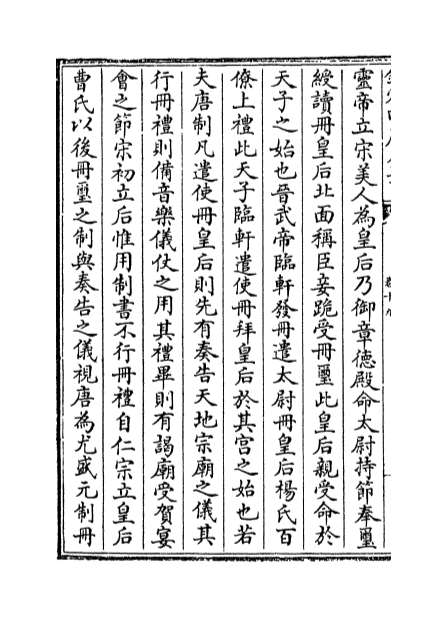 靈帝立宋美人為皇后乃御章德殿命太尉持節奉璽
綬讀冊皇后北面稱臣妾跪受冊璽此皇后親受命於
天子之始也晉武帝臨軒發冊遣太尉冊皇后楊氏百
僚上禮此天子臨軒遣使冊拜皇后於其宫之始也若
夫唐制凡遣使冊皇后則先有奏告天地宗廟之儀其
行冊禮則備音樂儀仗之用其禮畢則有謁廟受賀宴
會之節宋初立后惟用制書不行冊禮自仁宗立皇后
曹氏以後冊璽之制與奏告之儀視唐為尤盛元制冊